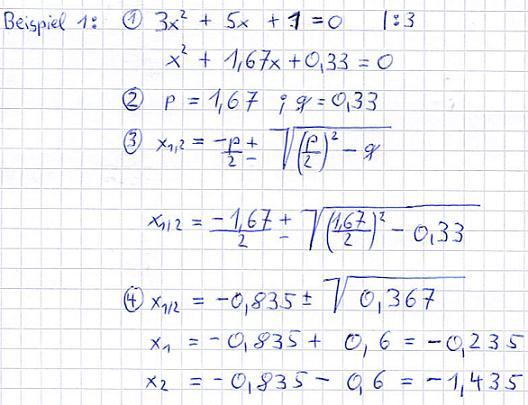 Beispiel 1: ① 3x² + 5x + 1 = 0 | : 3
x² + 1,67x + 0,33 = 0
② p = 1,67 ; q = 0,33
③ x₁,₂ = -p/2 ± √((p/2)² - q)
x₁/₂ = -1,67/2 ± √((1,67/2)² - 0,33)
④ x₁/₂ = -0,835 ± √0,367
x₁ = -0,835 + 0,6 = -0,235
x₂ = -0,835 - 0,6 = -1,435